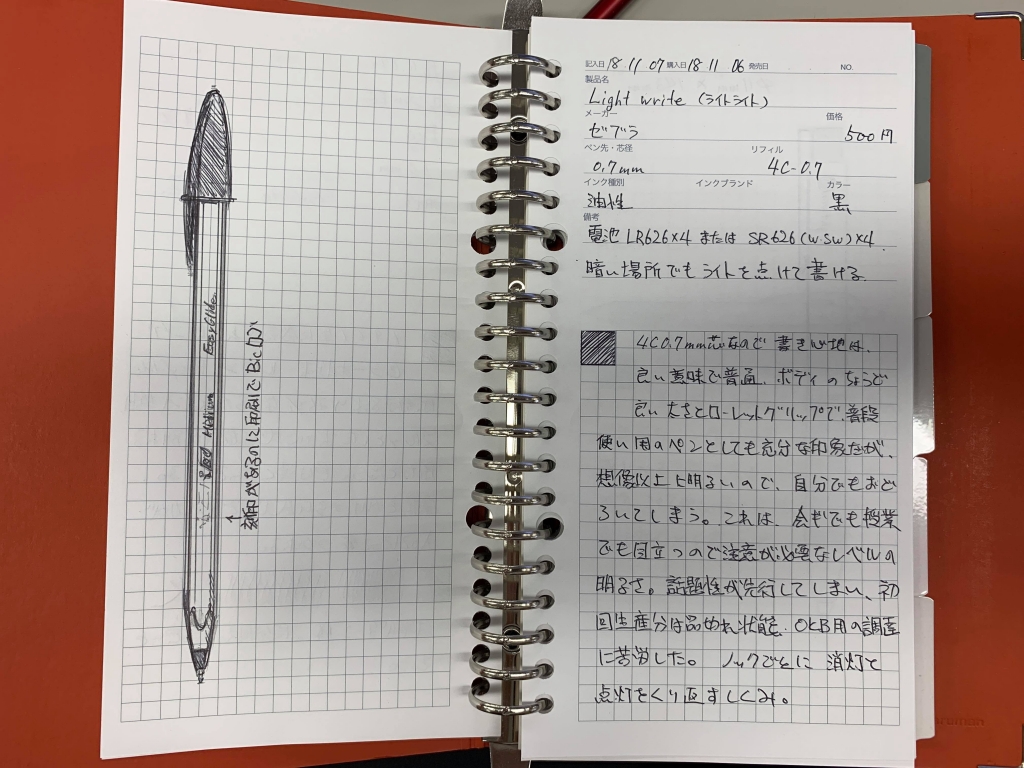 EasyGlide
Medium
刻印があるのに印刷でBicロゴ
記入日 18 11 07 購入日 18 11 06 発売日 NO.
製品名
Light write (ライトライト)
メーカー 価格
ゼブラ 500円
ペン先・芯径 リフィル
0.7mm 4C-0.7
インク種別 インクブランド カラー
油性 黒
備考
電池 LR626×4 または SR626(W.SW)×4.
暗い場所でもライトを点けて書ける.
4C0.7mm芯なので書き心地は、
良い意味で普通. ボディのちょうど
良い太さとローレットグリップで、普段
使い用のペンとしても充分な印象だが、
想像以上に明るいので、自分でもおど
ろいてしまう。これは、会議でも授業
でも目立つので注意が必要なレベルの
明るさ。話題性が先行してしまい、初
回生産分は品切れ状態. OKB用の調達
に苦労した。 ノックごとに 消灯と
点灯をくり返すしくみ。